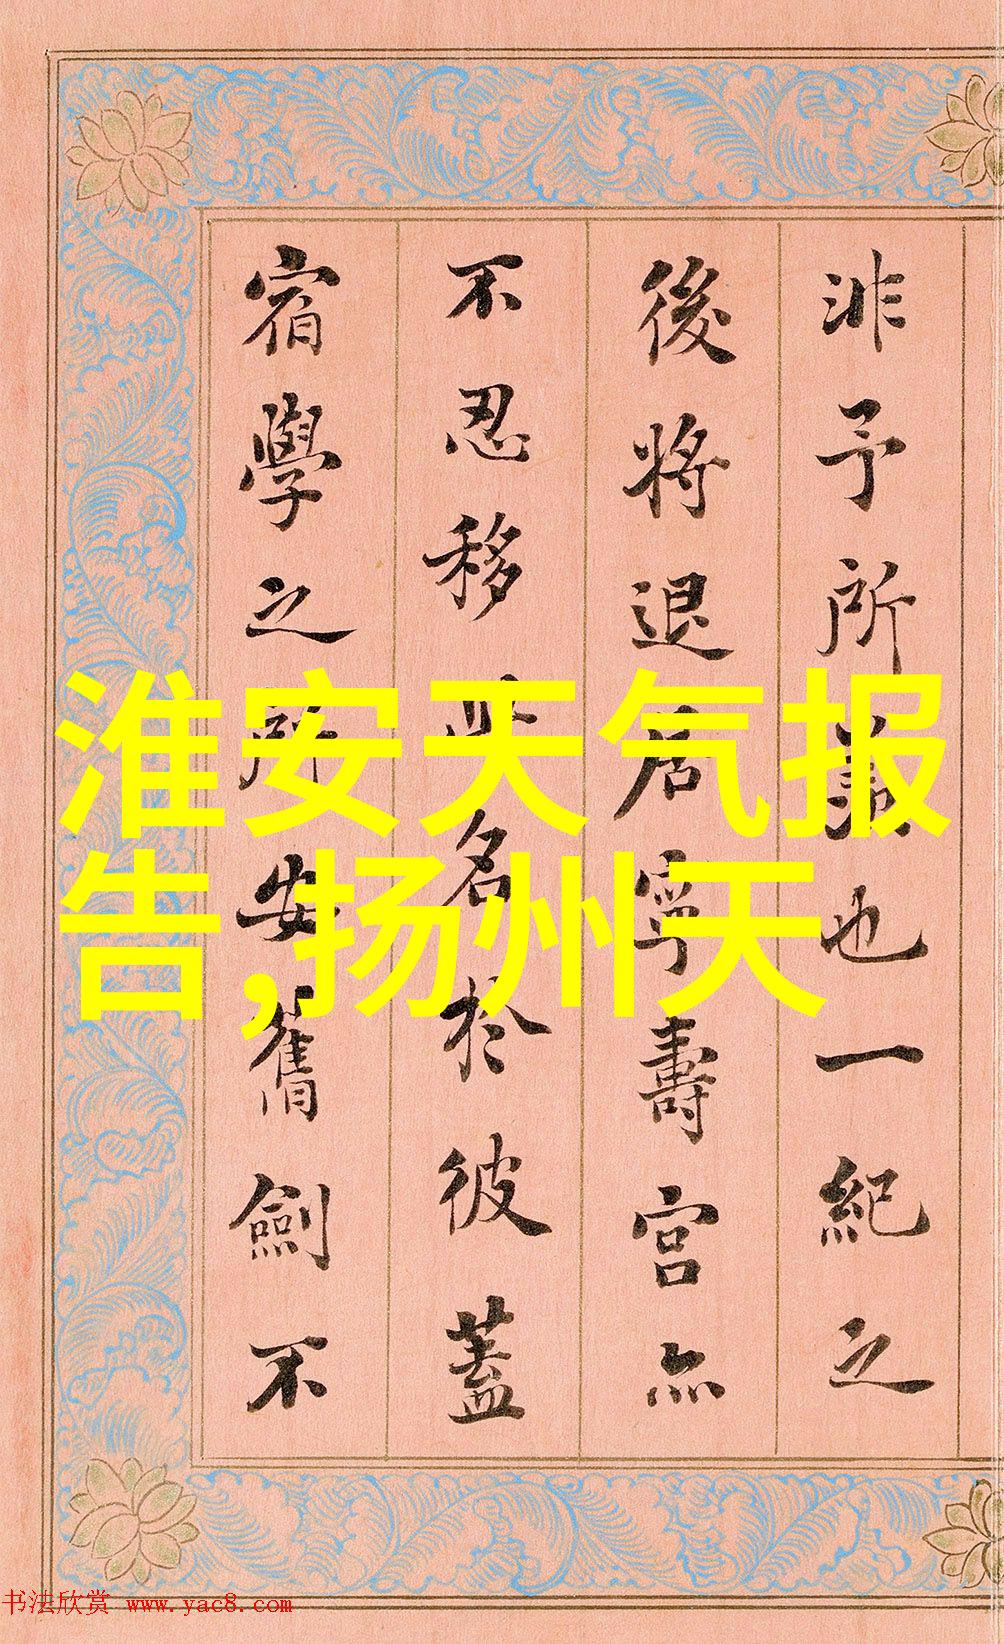 非予所義也一紀之
後將退居寧壽宮亦
不忍移此名於彼蓋
宿學之所安舊劍不
淮安天气报
告,扬州天
书法欣赏 www.yac8.com